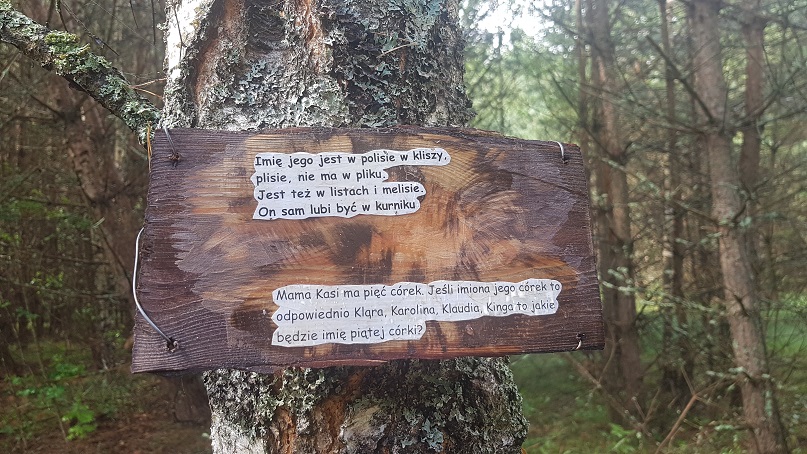 Imię jego jest w polisie w kliszy,
plisie, nie ma w pliku.
Jest też w listach i melisie.
On sam lubi być w kurniku
Mama Kasi ma pięć córek. Jeśli imiona jego córek to
odpowiednio Klara, Karolina, Klaudia, Kinga to jakie
będzie imię piątej córki?